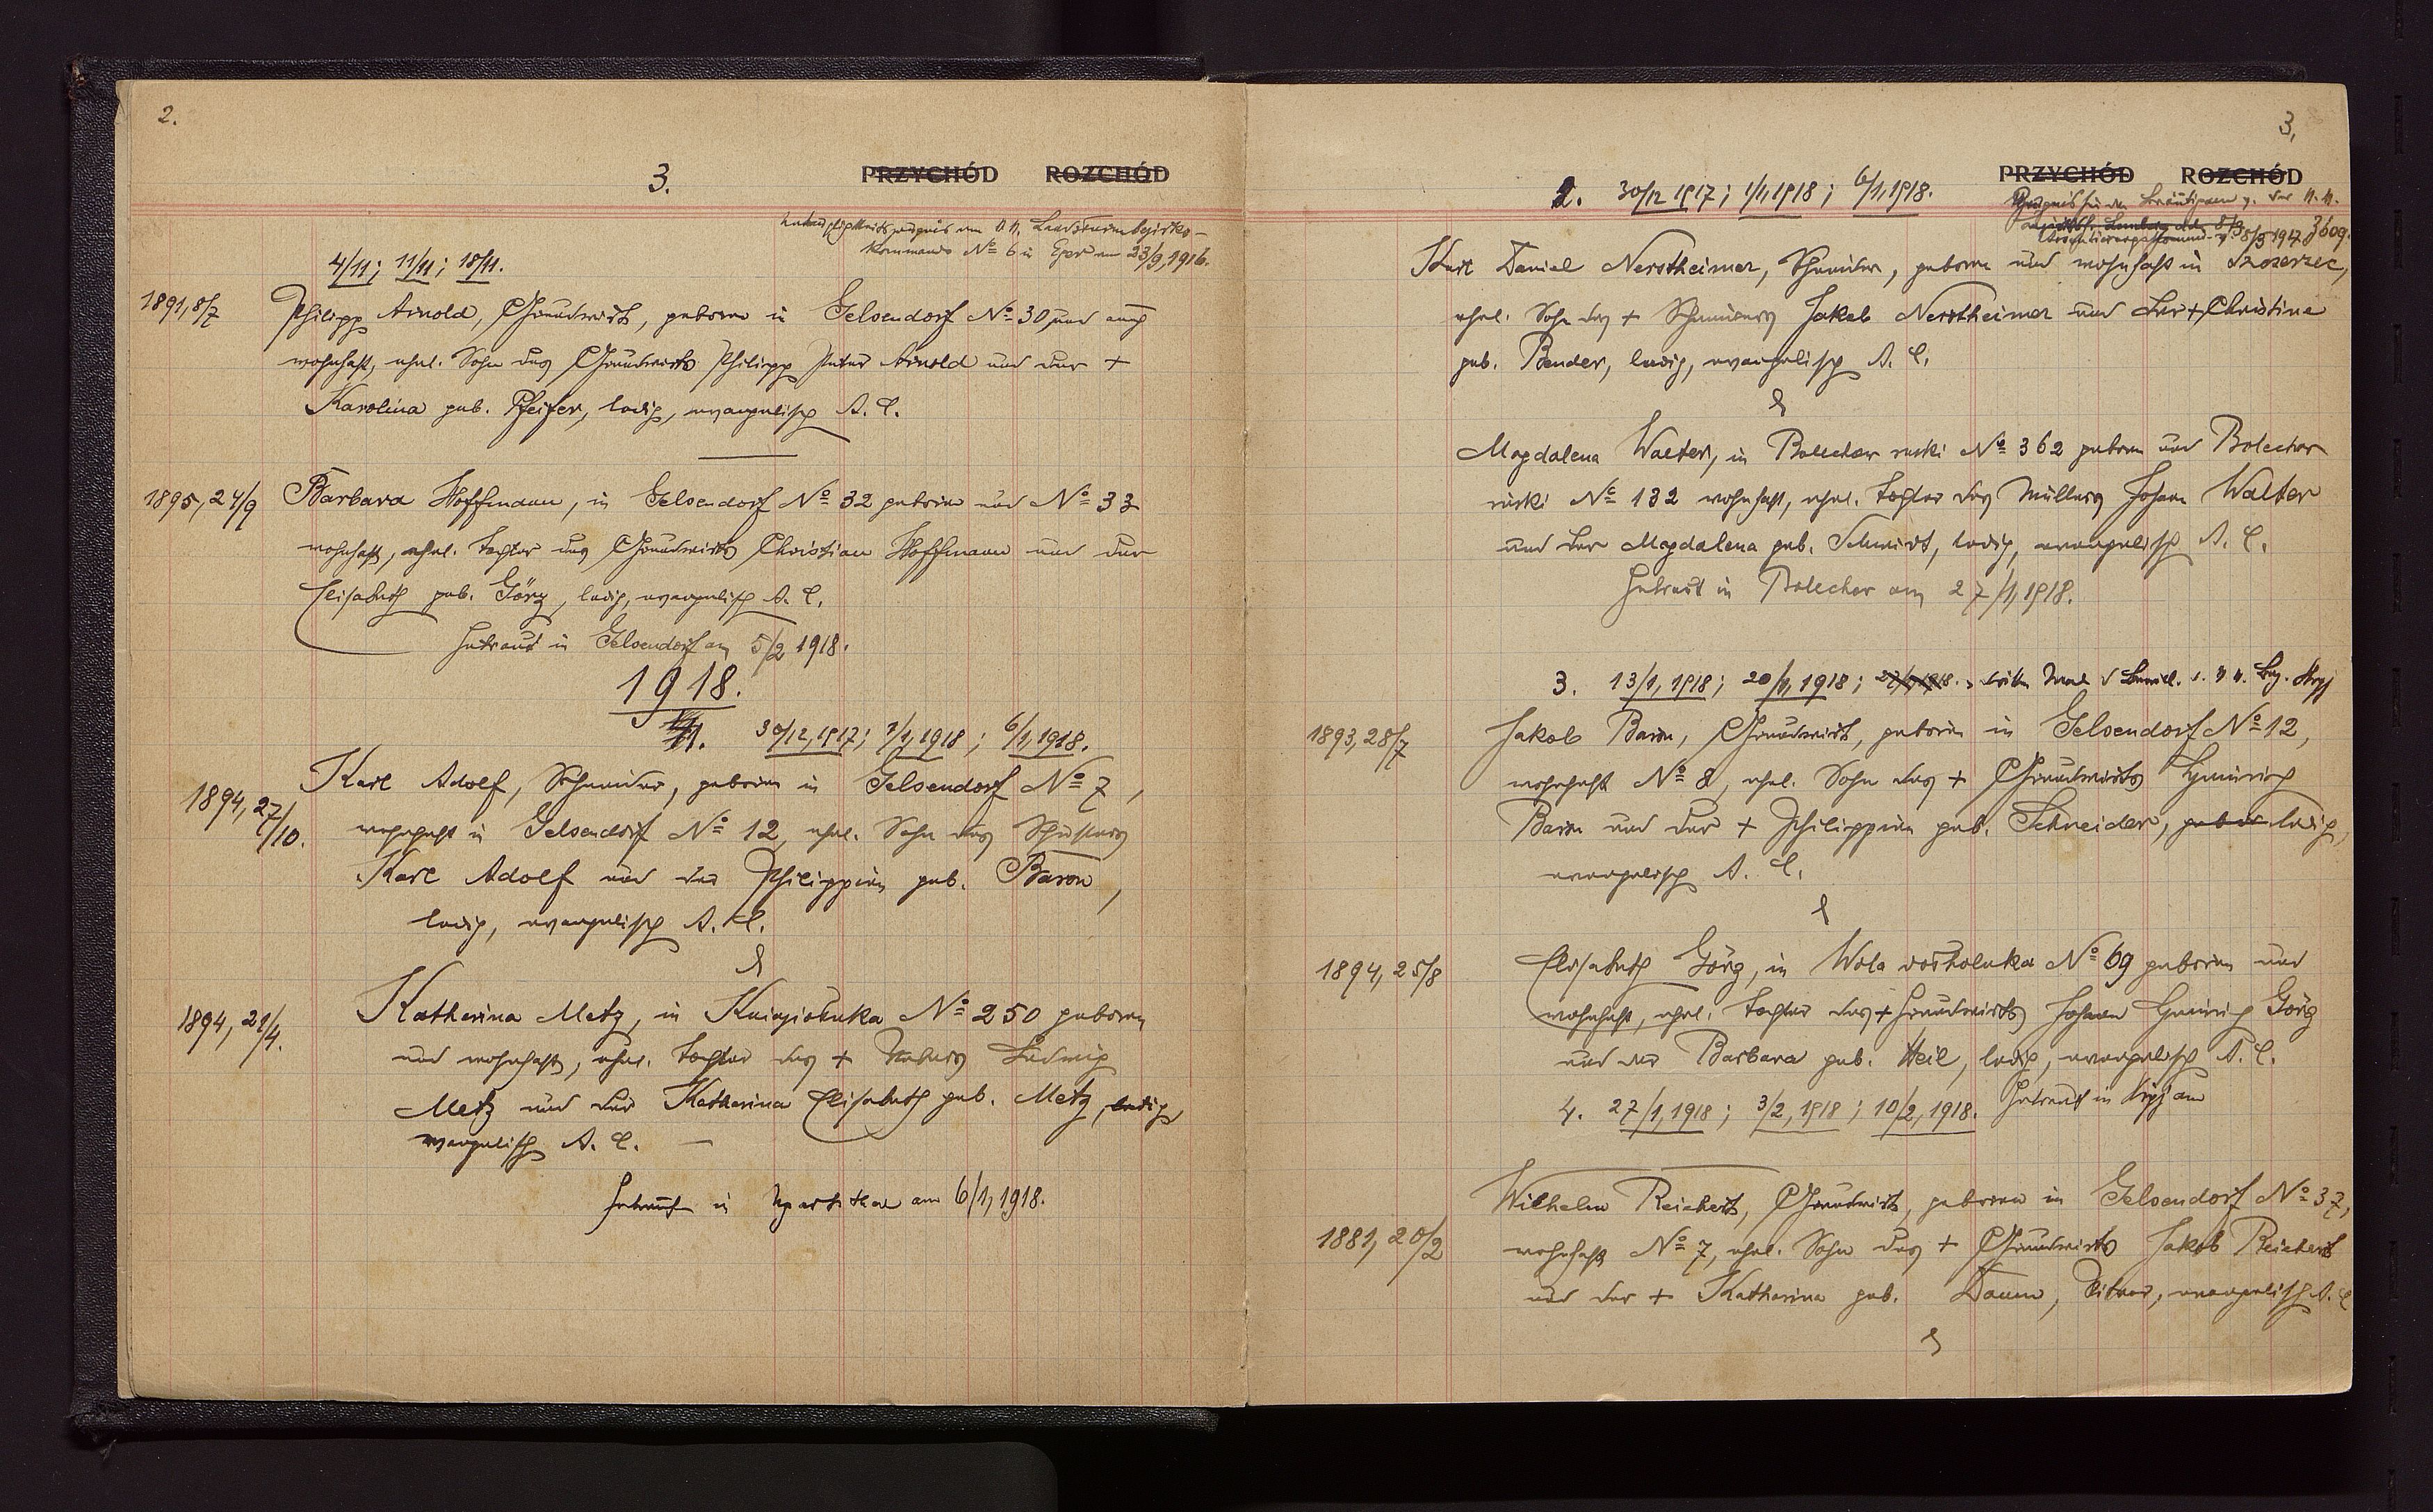 2.
3.
PRZYCHÓD ROZCHÓD
k. k. Landsturmbezirks-
kommando No 6 in Eger am 23/9, 1916.
4/11; 11/11; 18/11.
1891, 8/7 Philipp Arnold, Grundwirt, geboren in Gelsendorf No 30 und auch
wohnhaft, ehel. Sohn des Grundwirts Philipp Peter Arnold und der +
Karolina geb. Pfeifer, ledig, evangelisch A. C.
1895, 24/9 Barbara Hoffmann, in Gelsendorf No 32 geboren und No 33
wohnhaft, ehel. Tochter des Grundwirts Christian Hoffmann und der
Elisabeth geb. Görz, ledig, evangelisch A. C.
Getraut in Gelsendorf am 5/2 1918.
1918.
1. 30/12, 1917; 1/1, 1918; 6/1, 1918.
1894, 27/10. Karl Adolf, Schneider, geboren in Gelsendorf No 7,
wohnhaft in Gelsendorf No 12, ehel. Sohn des Schusters
Karl Adolf und der Philippine geb. Baron,
ledig, evangelisch A. C.
&
1894, 21/4. Katherina Metz, in Kniaziołuka No 250 geboren
und wohnhaft, ehel. Tochter des + Webers Ludwig
Metz und der Katharina Elisabeth geb. Metz, ledig
evangelisch A. C. —
Getraut in Ugartsthal am 6/1, 1918.
3.
PRZYCHÓD ROZCHÓD
2. 30/12 1917; 1/1, 1918; 6/1, 1918.
Zeugnis für den Bräutigam v. der k. k.
8/3 1917 3609.
Karl Daniel Nerstheimer, Schneider, geboren und wohnhaft in Szczerzec,
ehel. Sohn des + Schneiders Jakob Nerstheimer und der + Christine
geb. Bender, ledig, evangelisch A. C.
&
Magdalena Walter, in Bolechow ruski No 362 geboren und Bolechow
ruski No 132 wohnhaft, ehel. Tochter des Müllers Johann Walter
und der Magdalena geb. Schmidt, ledig, evangelisch A. C.
Getraut in Bolechow am 27/1, 1918.
3. 13/1, 1918; 20/1, 1918; 27/1, 1918. Stryj
1893, 28/7 Jakob Baron, Grundwirt, geboren in Gelsendorf No 12,
wohnhaft No 8, ehel. Sohn des + Grundwirts Heinrich
Baron und der + Philippine geb. Schneider, gebor ledig,
evangelisch A. C.
&
1894, 25/8 Elisabeth Görz, in Wola dołholuka No 69 geboren und
wohnhaft, ehel. Tochter des + Grundwirts Johann Heinrich Görz
und der Barbara geb. Heil, ledig, evangelisch A. C.
Getraut in Stryj am
4. 27/1, 1918; 3/2, 1918; 10/2, 1918.
1881, 20/2 Wilhelm Reichert, Grundwirt, geboren in Gelsendorf No 37,
wohnhaft No 7, ehel. Sohn des + Grundwirts Jakob Reichert
und der + Katharina geb. Daum, Witwer, evangelisch A. C.
&